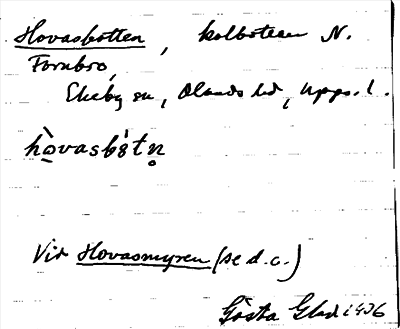 Hovasbotten, kolbotten N.
Fornbro,
Ekeby sn, Olands hd, Upps. l.
hòvasbòtn̥
Vid Hovasmyren (se d. o.)
Gösta Glad 1936